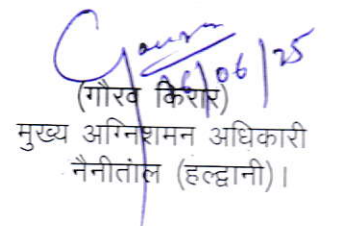 Gaurav
26/06/25
(गौरव किरार)
मुख्य अग्निशमन अधिकारी
नैनीताल (हल्द्वानी)।